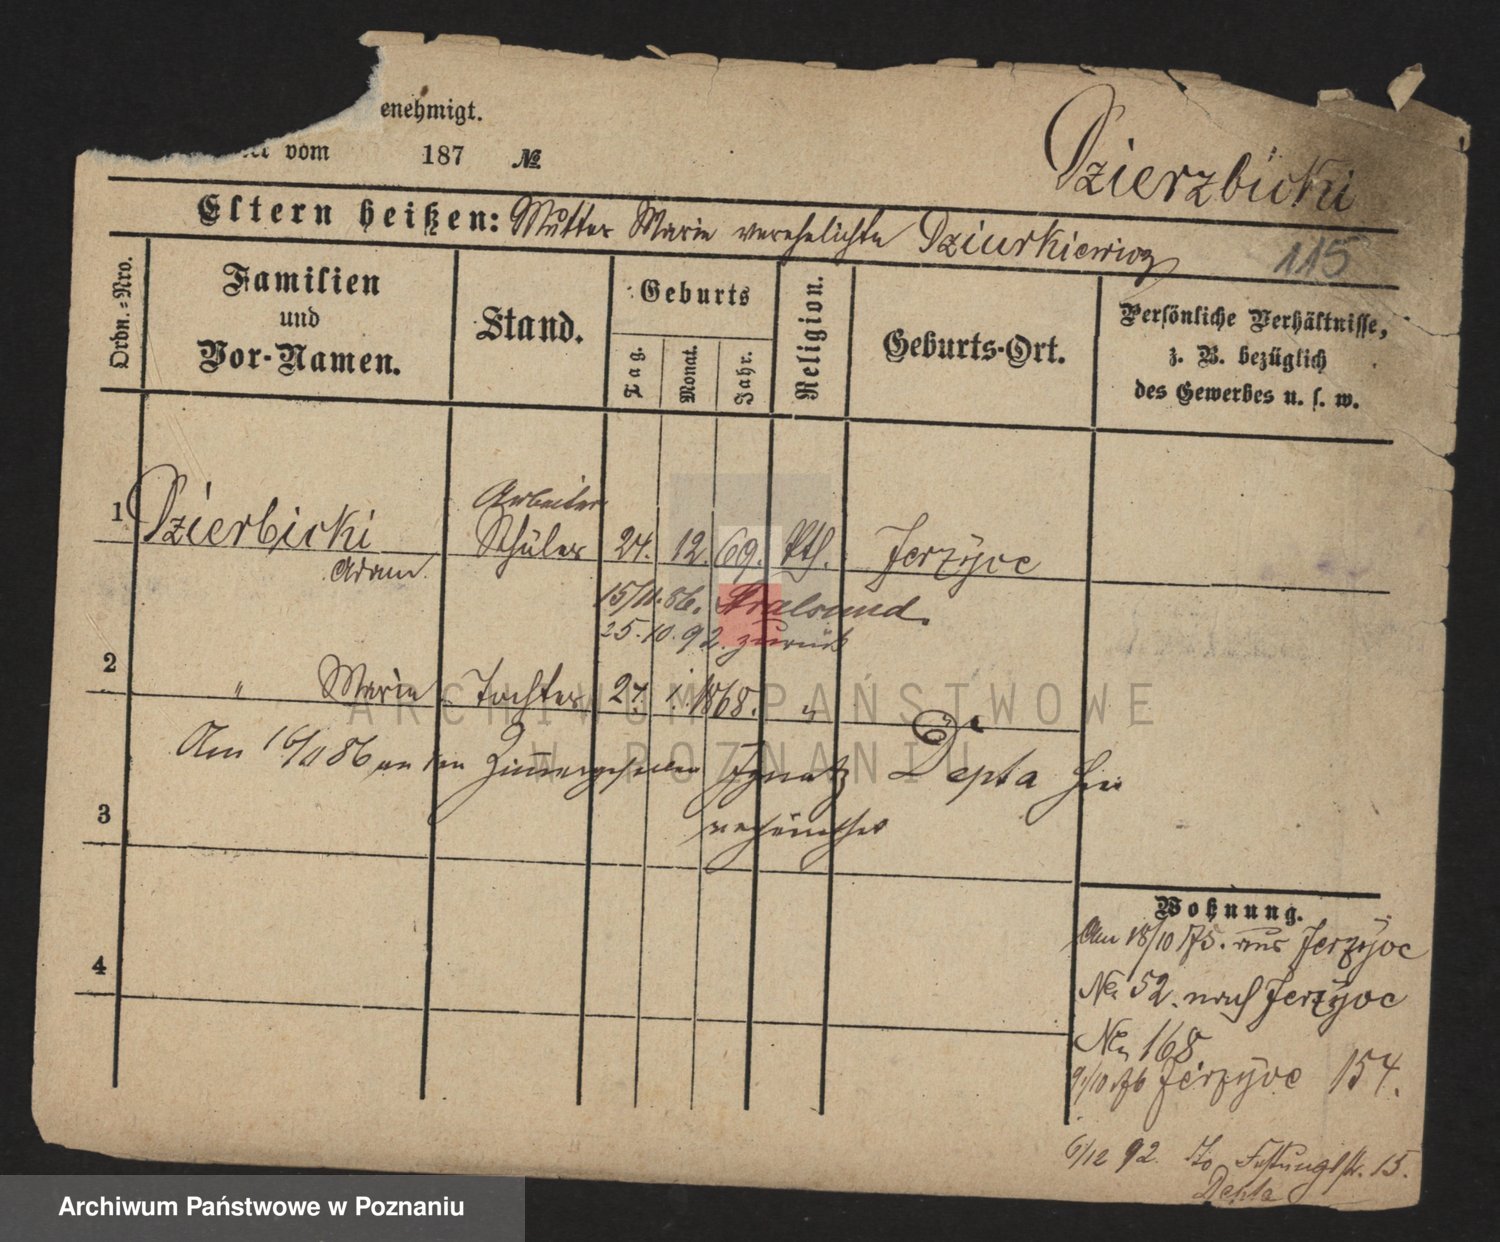 enehmigt.
vom 187 №
Dzierzbicki
Eltern heißen: Mutter Marie verehelichte Dziurkiewicz
115
Ordn.-Nro.
Familien und Vor-Namen.
Stand.
Geburts
Tag.
Monat.
Jahr.
Religion.
Geburts-Ort.
Persönliche Verhältnisse,
z. B. bezüglich
des Gewerbes u. s. w.
Arbeiter
1 Dzierbicki Schüler 24. 12. 69. Kth. Jerzyce
Adam.
15/11.86. Stralsund.
25.10.92. zurück
2 " Marie Tochter 27. 1. 1868. "
Am 16/11 86 an den Zimmergesellen Ignatz Depta hier
3 verheirathet
4
Wohnung.
Am 18/10 75. aus Jerzyce
No 52. nach Jerzyce
No 168
9/10.76 Jerzyce 154.
6/12 92. Festungsstr. 15.
Depta
ARCHIWUM PAŃSTWOWE
W POZNANIU
Archiwum Państwowe w Poznaniu